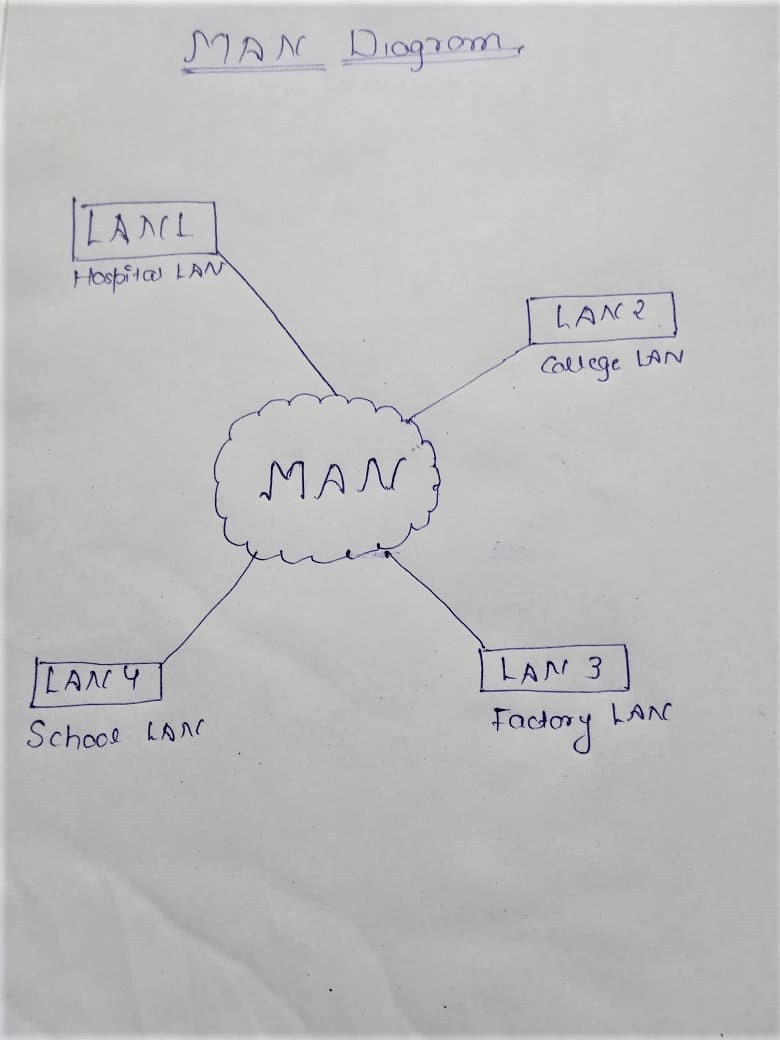 MAN Diagram.
LAN 1
Hospital LAN
LAN 2
College LAN
MAN
LAN 4
School LAN
LAN 3
Factory LAN